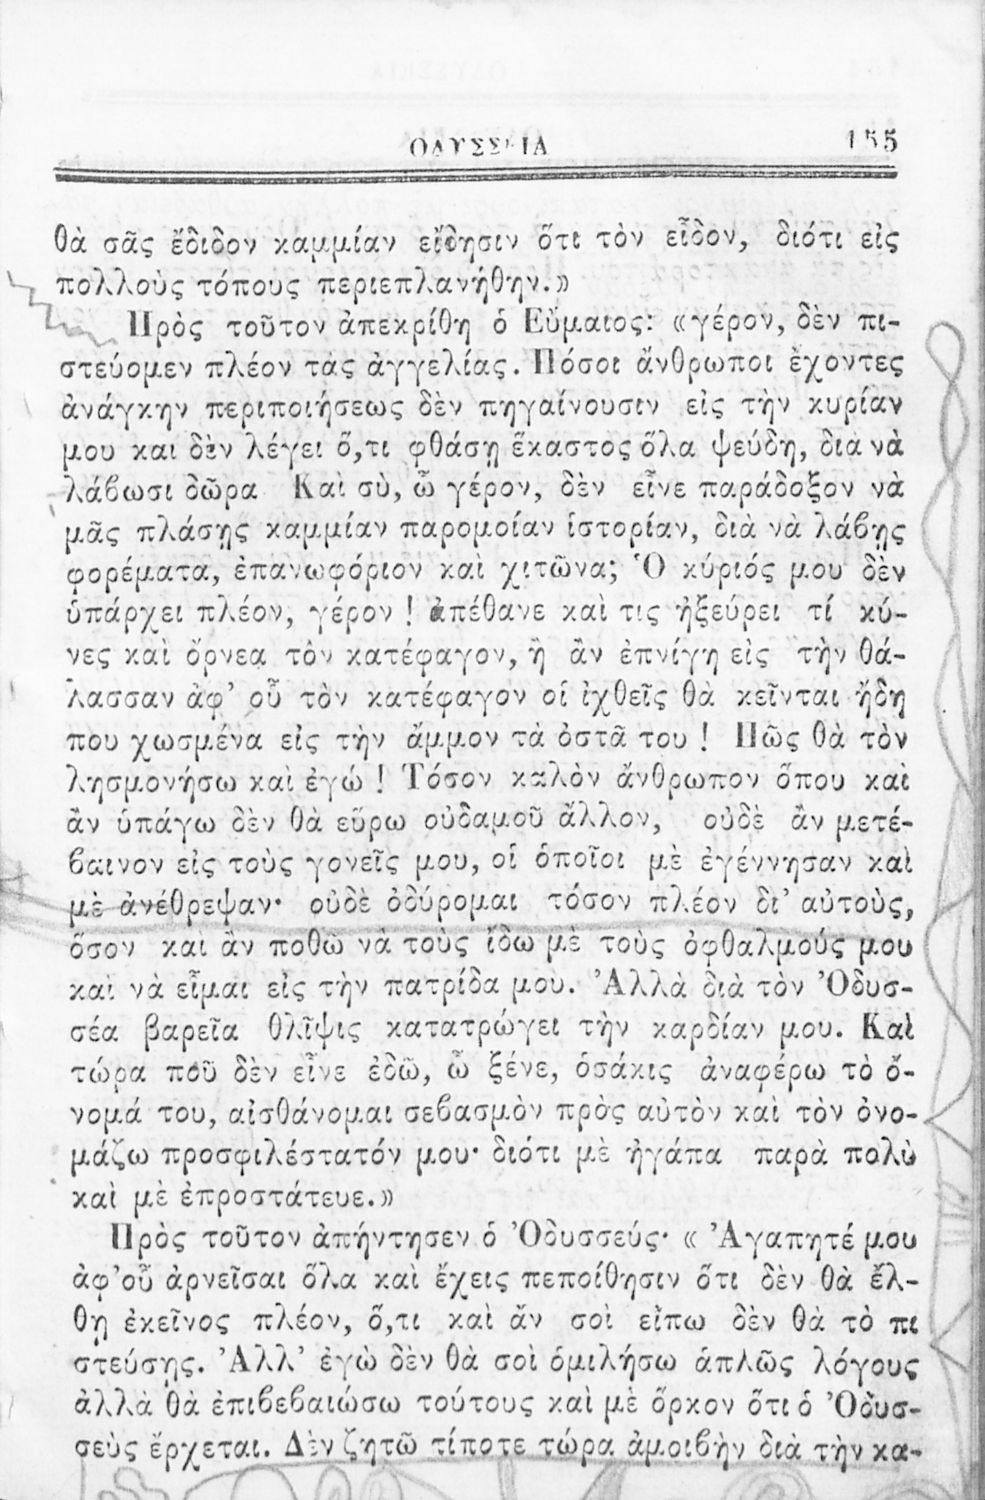 ΟΔΥΣΣΕΙΑ 155
θὰ σᾶς ἔδιδον καμμίαν εἴδησιν ὅτι τὸν εἶδον, διότι εἰς
πολλοὺς τόπους περιεπλανήθην.»
Πρὸς τοῦτον ἀπεκρίθη ὁ Εὔμαιος: «γέρον, δὲν πι-
στεύομεν πλέον τὰς ἀγγελίας. Πόσοι ἄνθρωποι ἔχοντες
ἀνάγκην περιποιήσεως δὲν πηγαίνουσιν εἰς τὴν κυρίαν
μου και δὲν λέγει ὅ,τι φθάσῃ ἕκαστος ὅλα ψεύδη, διὰ νὰ
λάβωσι δῶρα Καὶ σὺ, ὦ γέρον, δὲν εἶνε παράδοξον νὰ
μᾶς πλάσῃς καμμίαν παρομοίαν ἱστορίαν, διὰ νὰ λάβῃς
φορέματα, ἐπανωφόριον καὶ χιτῶνα; Ὁ κύριός μου δὲν
ὑπάρχει πλέον, γέρον ! ἀπέθανε καὶ τις ἠξεύρει τί κύ-
νες καὶ ὄρνεα τὸν κατέφαγον, ἢ ἂν ἐπνίγη εἰς τὴν θά-
λασσαν ἀφ’ οὗ τὸν κατέφαγον οἱ ἰχθεῖς θὰ κεῖνται ἤδη
που χωσμένα εἰς τὴν ἄμμον τὰ ὀστᾶ του ! Πῶς θὰ τὸν
λησμονήσω καὶ ἐγώ ! Τόσον καλὸν ἄνθρωπον ὅπου καὶ
ἂν ὑπάγω δὲν θὰ εὕρω οὐδαμοῦ ἄλλον, οὐδὲ ἂν μετέ-
βαινον εἰς τοὺς γονεῖς μου, οἱ ὁποῖοι μὲ ἐγέννησαν καὶ
μὲ ἀνέθρεψαν· οὐδὲ ὀδύρομαι τόσον πλέον δι’ αὐτοὺς,
ὅσον καὶ ἂν ποθῶ νὰ τοὺς ἴδω μὲ τοὺς ὀφθαλμούς μου
καὶ νὰ εἶμαι εἰς τὴν πατρίδα μου. Ἀλλὰ διὰ τὸν Ὀδυσ-
σέα βαρεῖα θλῖψις κατατρώγει τὴν καρδίαν μου. Καὶ
τώρα ποῦ δὲν εἶνε ἐδῶ, ὦ ξένε, ὁσάκις ἀναφέρω τὸ ὄ-
νομά του, αἰσθάνομαι σεβασμὸν πρὸς αὐτὸν καὶ τὸν ὀνο-
μάζω προσφιλέστατόν μου· διότι μὲ ἠγάπα παρὰ πολὺ
καὶ μὲ ἐπροστάτευε.»
Πρὸς τοῦτον ἀπήντησεν ὁ Ὀδυσσεύς· « Ἀγαπητέ μου
ἀφ’οὗ ἀρνεῖσαι ὅλα καὶ ἔχεις πεποίθησιν ὅτι δὲν θὰ ἔλ-
θῃ ἐκεῖνος πλέον, ὅ,τι καὶ ἄν σοὶ εἴπω δὲν θὰ τὸ πι
στεύσῃς. Ἀλλ’ ἐγὼ δὲν θὰ σοὶ ὁμιλήσω ἁπλῶς λόγους
ἀλλὰ θὰ ἐπιβεβαιώσω τούτους καὶ μὲ ὅρκον ὅτι ὁ Ὀδυσ-
σεὺς ἔρχεται. Δὲν ζητῶ τίποτε τώρα ἀμοιβὴν διὰ τὴν κα-